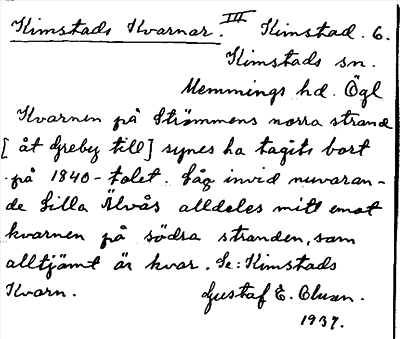 Kimstads Kvarnar. III Kimstad. 6.
Kimstads sn.
Memmings hd. Ögl
Kvarnen på Strömmens norra strand
[åt Greby till] synes ha tagits bort
på 1840-talet. Låg invid nuvaran-
de Lilla Älvås alldeles mitt emot
kvarnen på södra stranden, som
alltjämt är kvar. Se: Kimstads
Kvarn. Gustaf E. Olsson.
1937.